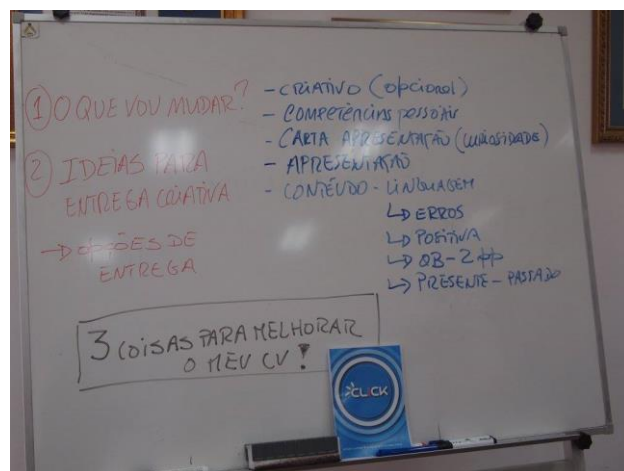 ① O QUE VOU MUDAR?
② IDEIAS PARA
ENTREGA CRIATIVA
→ OPÇÕES DE
ENTREGA
- CRIATIVO (opcional)
- COMPETÊNCIAS pessoais
- CARTA APRESENTAÇÃO (CURIOSIDADE)
- APRESENTAÇÃO
- CONTEÚDO - LINGUAGEM
↳ ERROS
↳ POSITIVA
↳ QB - 2 pp
↳ PRESENTE - PASSADO
3 COISAS PARA MELHORAR
O MEU CV!
CLICK